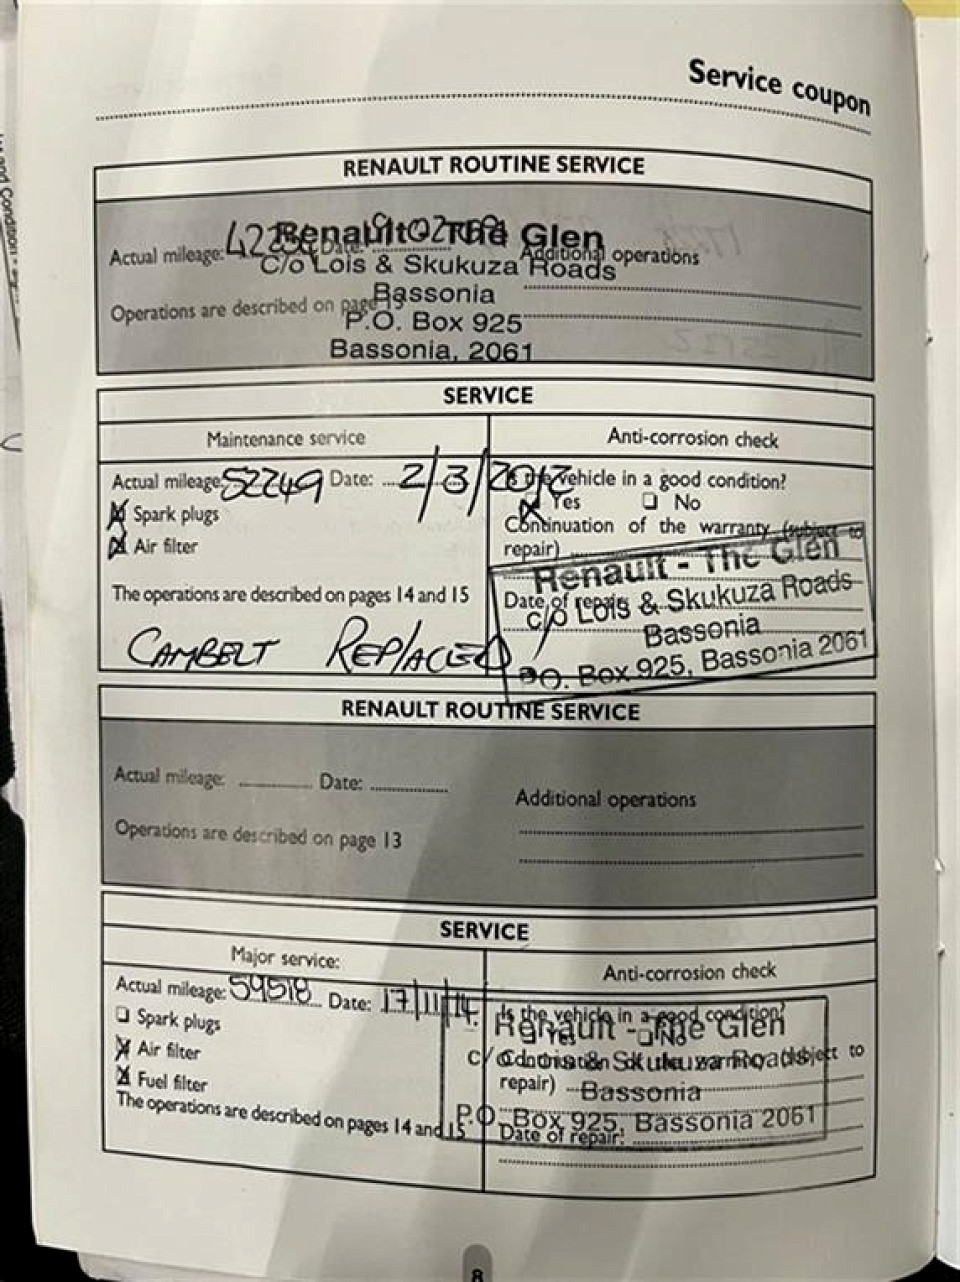 Service coupon
RENAULT ROUTINE SERVICE
Actual mileage: Date:
Renault - The Glen
Additional operations
C/o Lois & Skukuza Roads
Bassonia
Operations are described on page 13
P.O. Box 925
Bassonia, 2061
SERVICE
Maintenance service
Anti-corrosion check
Actual mileage: 52249 Date: 2/3/2012
Is the vehicle in a good condition?
Yes No
Spark plugs
Air filter
Continuation of the warranty (subject to
repair)
The operations are described on pages 14 and 15
Date of repair:
CAMBELT REPLACED
Renault - The Glen
c/o Lois & Skukuza Roads
Bassonia
P.O. Box 925, Bassonia 2061
RENAULT ROUTINE SERVICE
Actual mileage: Date:
Additional operations
Operations are described on page 13
SERVICE
Major service:
Anti-corrosion check
Actual mileage: 59518 Date: 17/11/14
Spark plugs
Air filter
Fuel filter
The operations are described on pages 14 and 15
Is the vehicle in a good condition?
Yes No
Continuation of the warranty (subject to
repair)
Date of repair:
Renault - The Glen
c/o Lois & Skukuza Roads
Bassonia
P.O. Box 925, Bassonia 2061
8